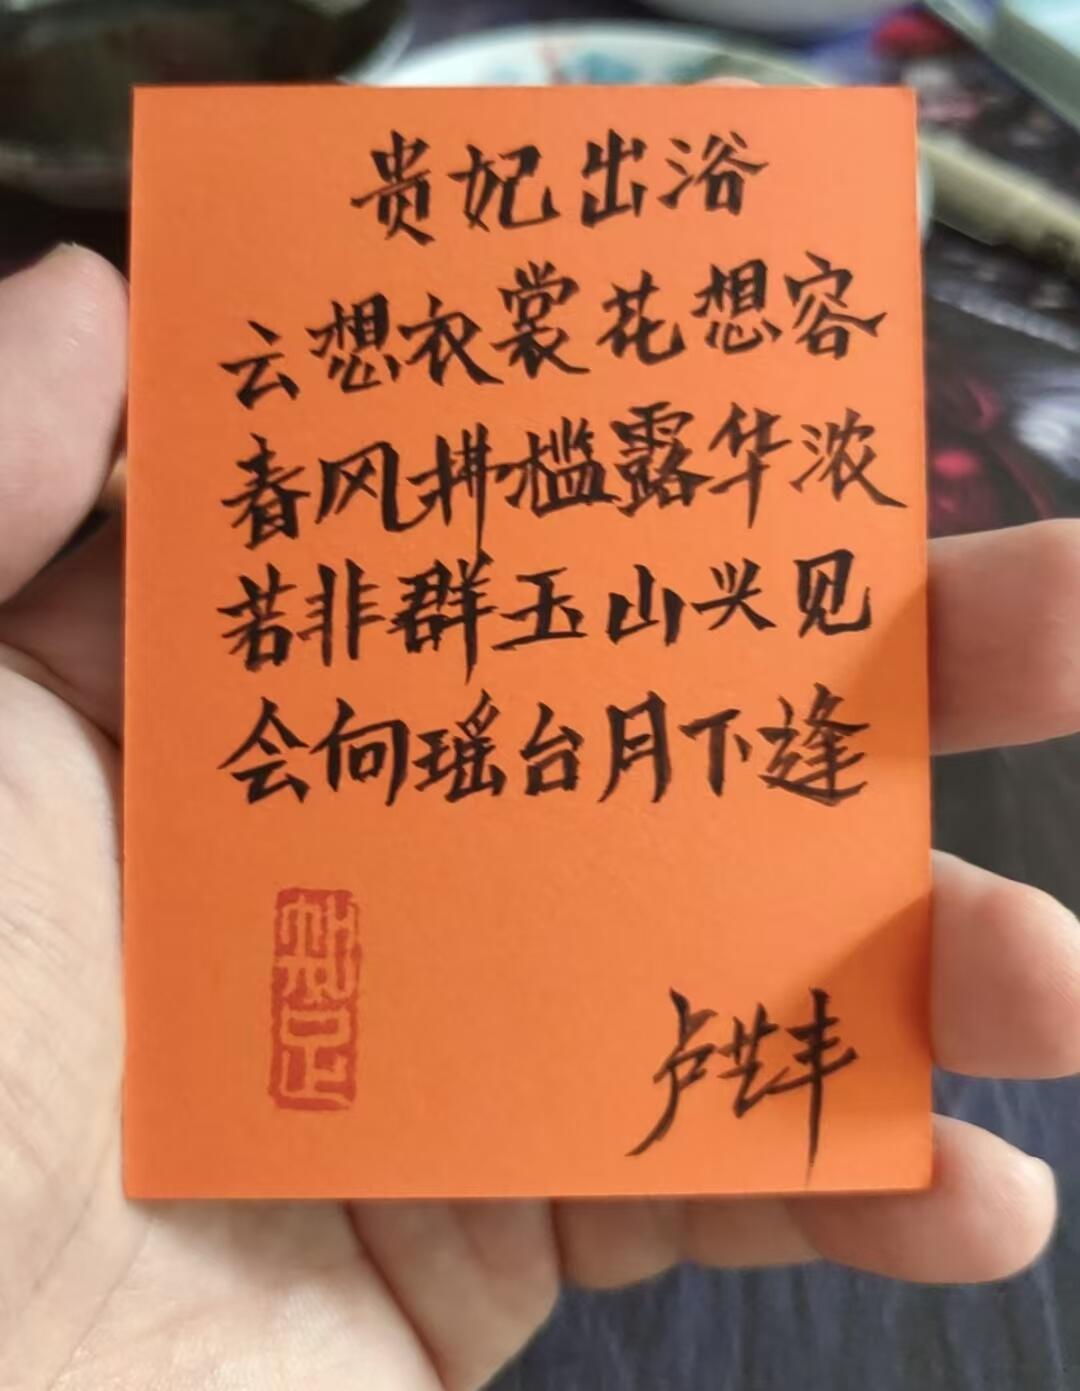 贵妃出浴
云想衣裳花想容
春风拂槛露华浓
若非群玉山头见
会向瑶台月下逢
知足
卢艺丰